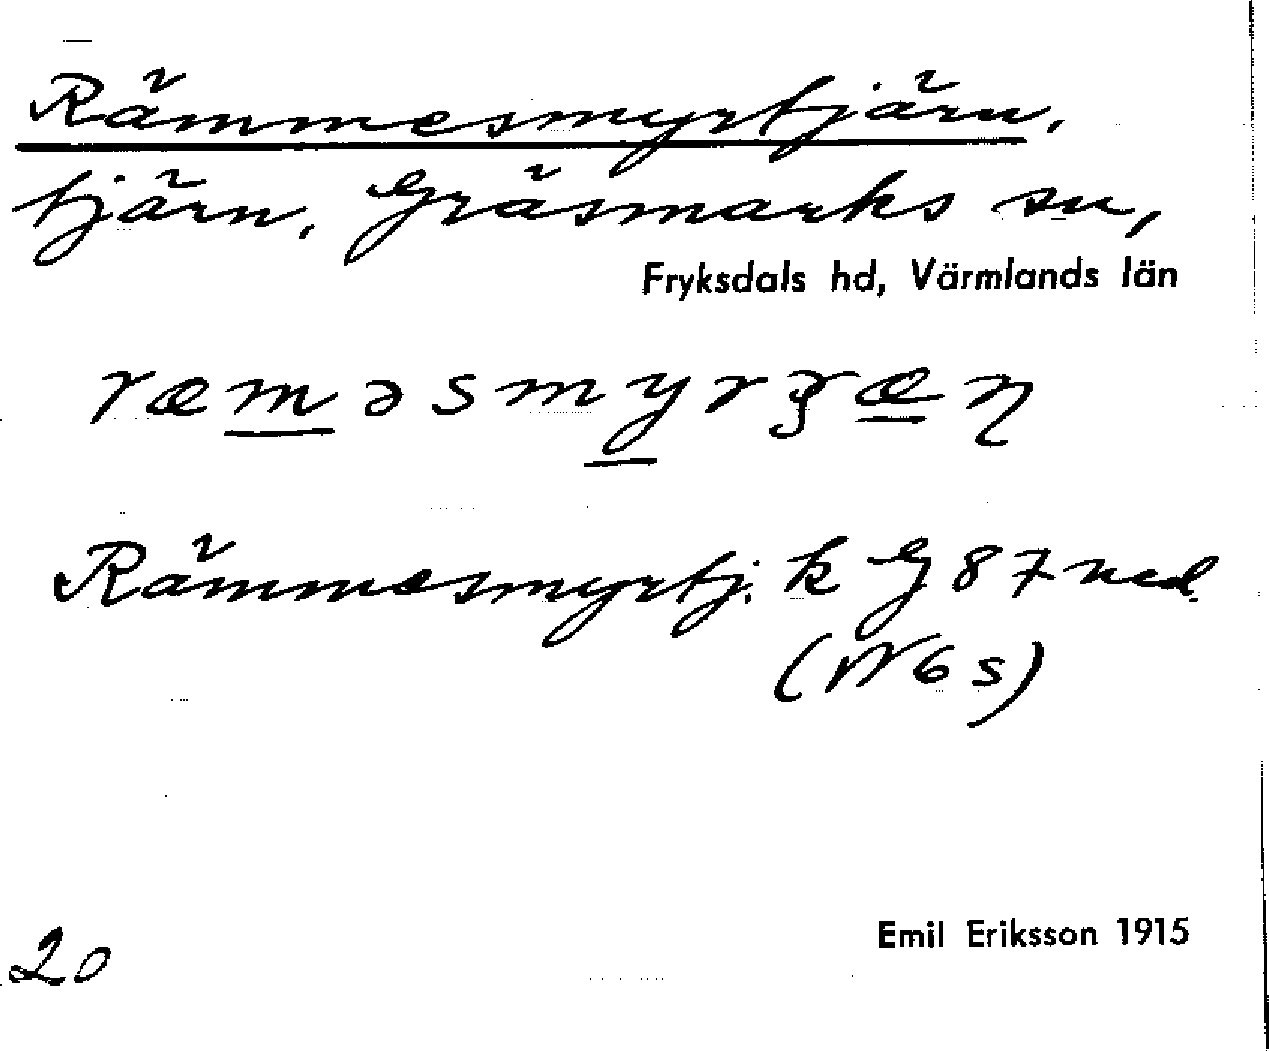 Rämmesmyrtjärn,
tjärn, Gräsmarks sn,
Fryksdals hd, Värmlands län
ræməsmyrʒæɳ
Rämmesmyrtj. k G 87 ned.
(N 6 s)
Emil Eriksson 1915
20